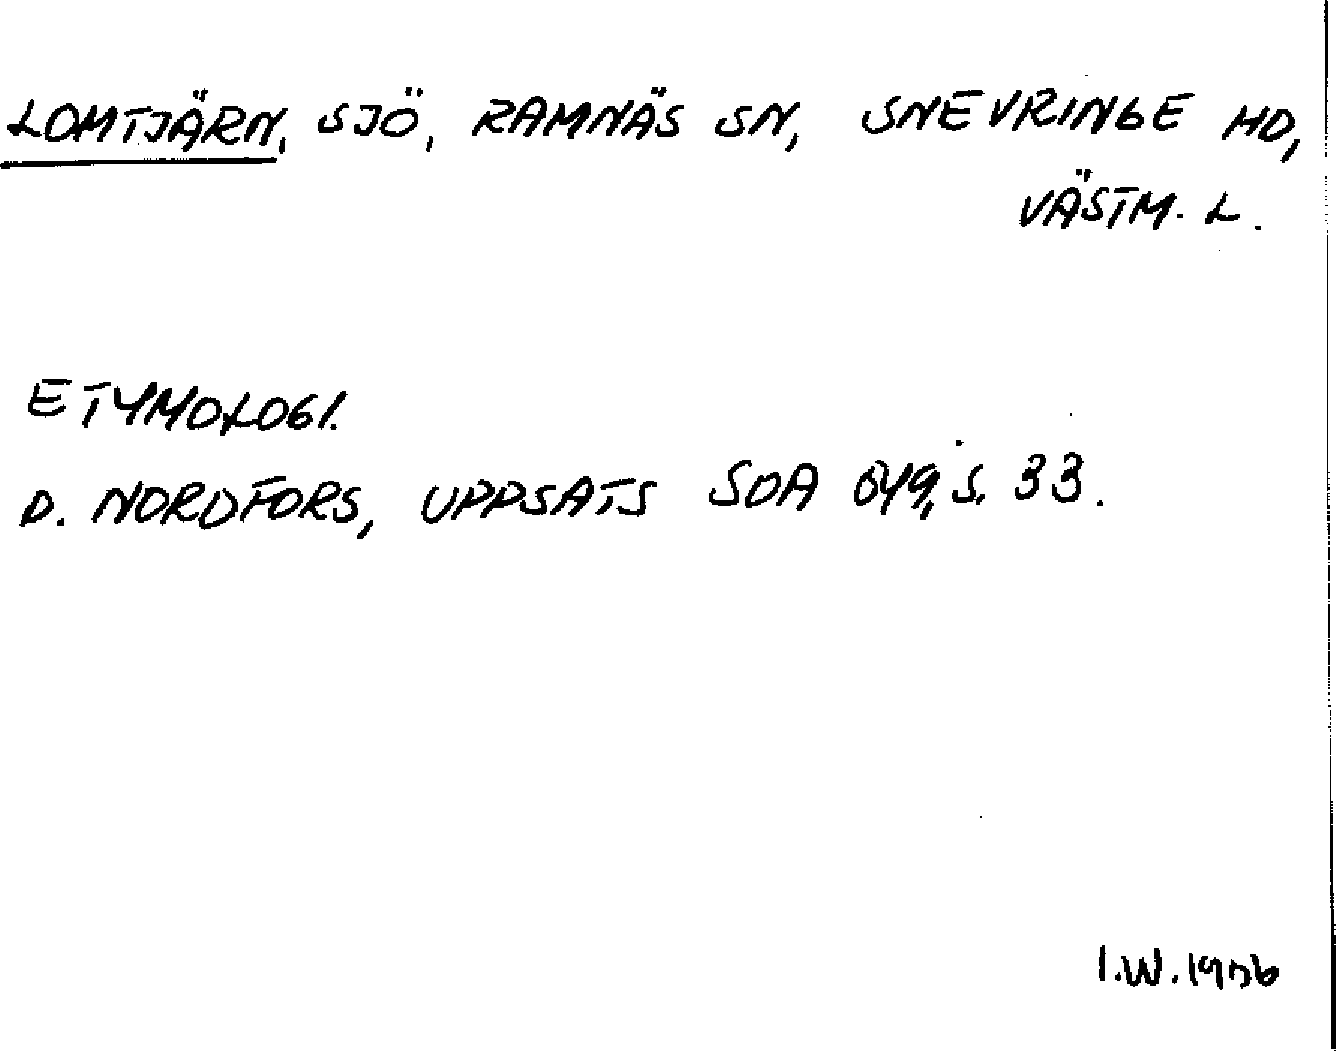 LOMTJÄRN, SJÖ, RAMNÄS SN, SNEVRINGE HD,
VÄSTM. L.
ETYMOLOGI.
D. NORDFORS, UPPSATS SOA 649, S. 33.
I.W. 1956